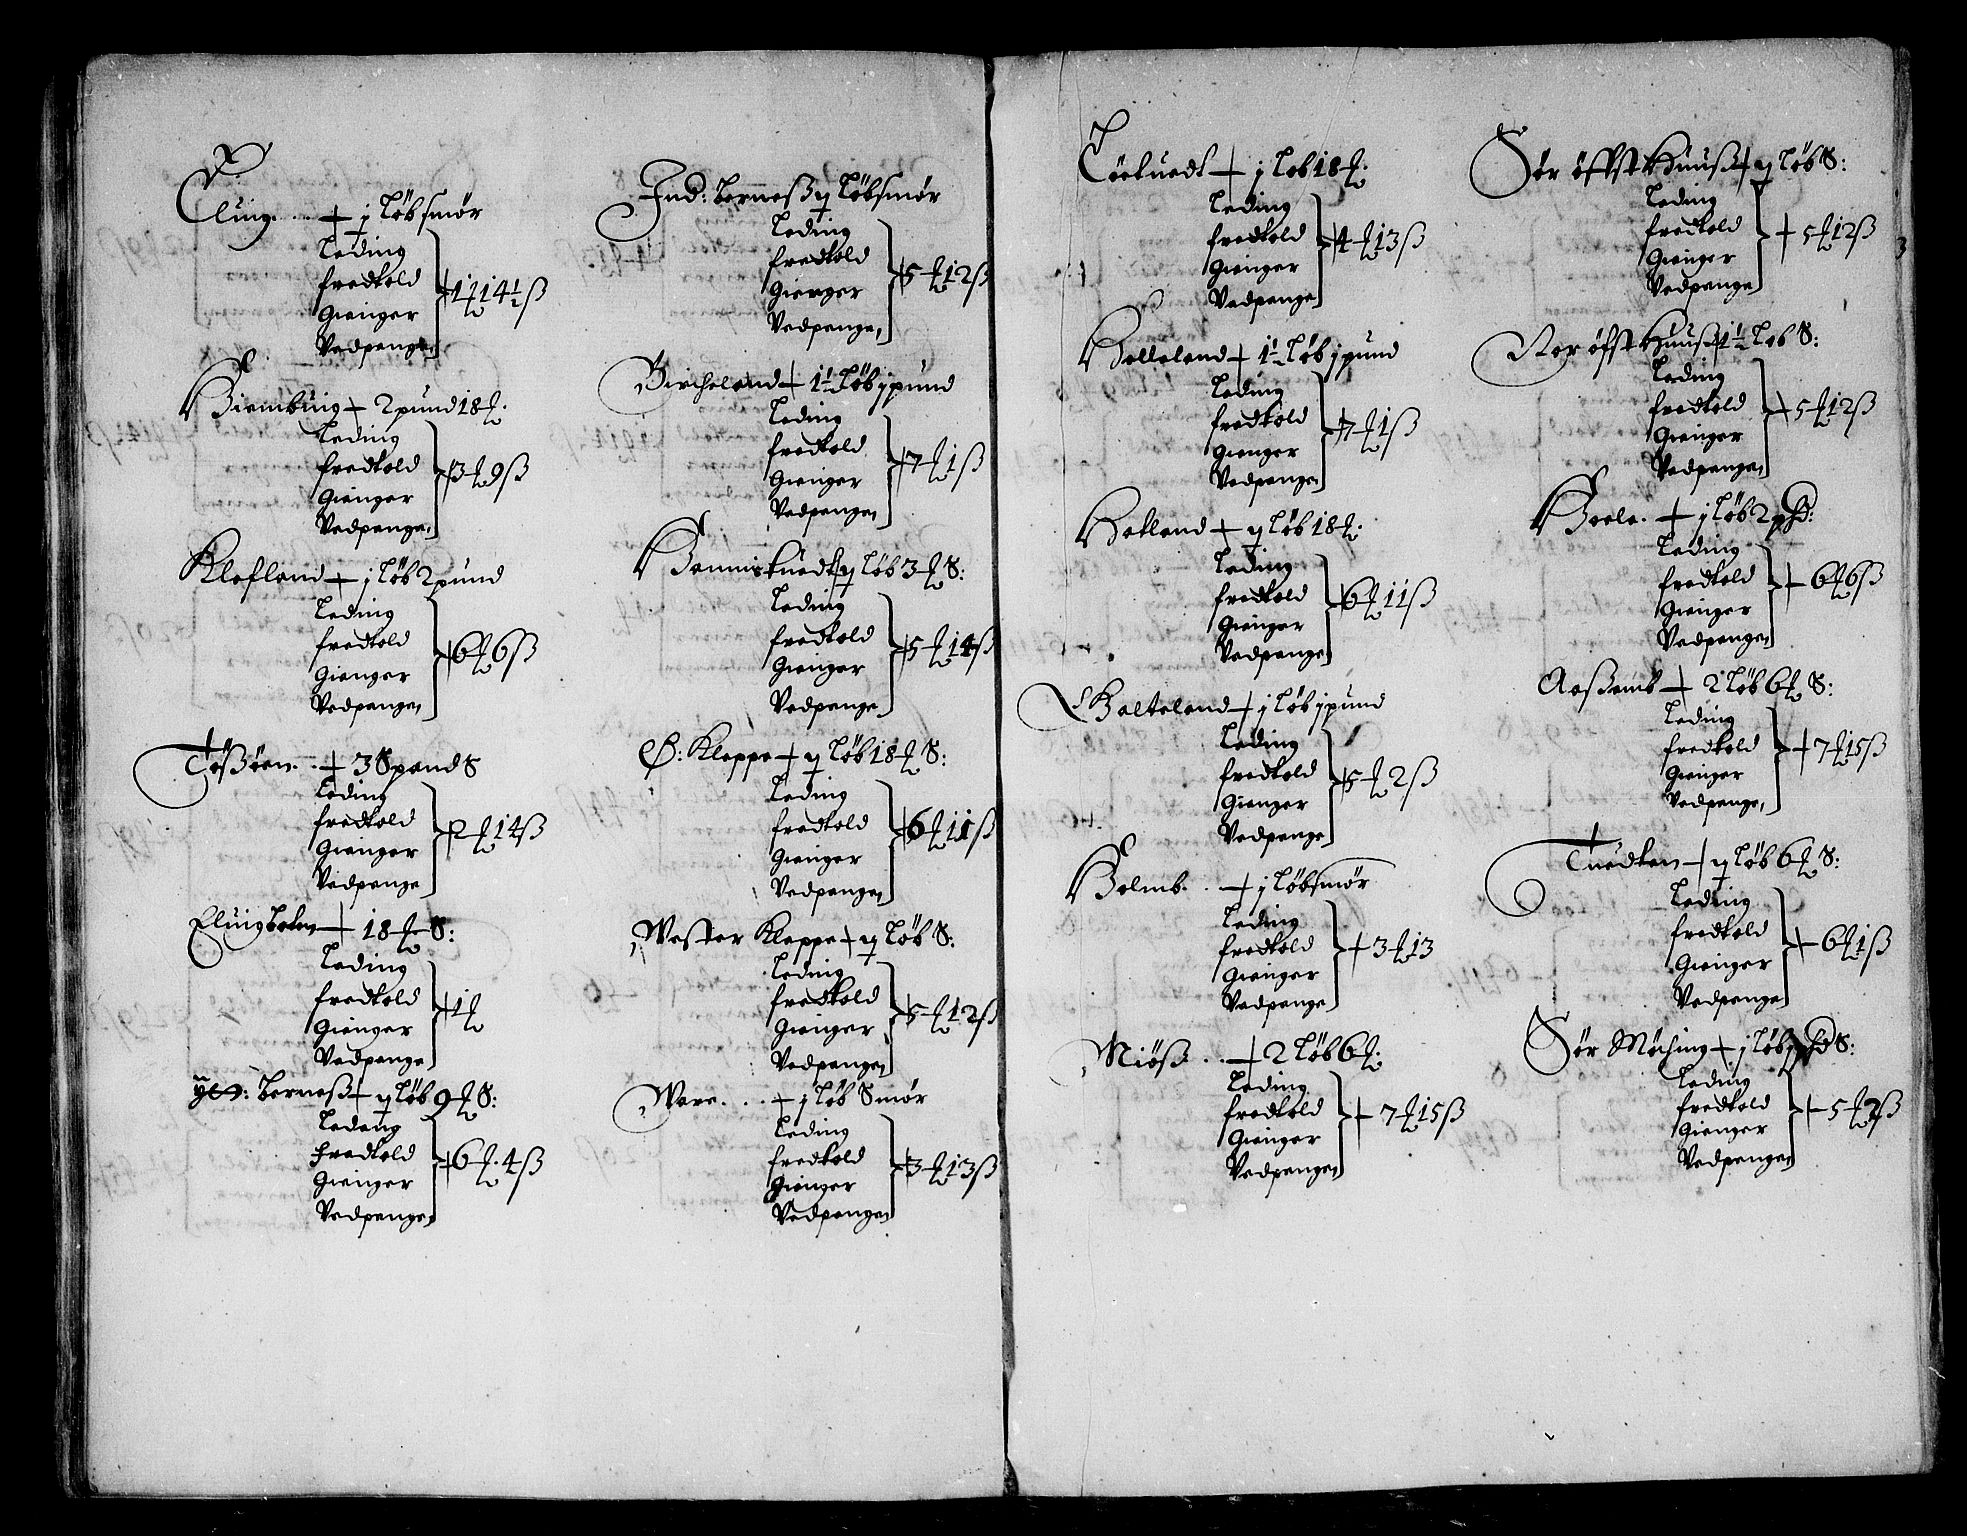 Eluig .... + j Løb smør
Leding
fredtold
Gienger
Vedpenge
+ 1 ℔ 14½ ß
Biembuig + 2 pund 18 ℔:
Leding
fredtold
Gienger
Vedpenge
+ 3 ℔ 9 ß
Klefland + j Løb 2 pund
Leding
fredtold
Gienger
Vedpenge
+ 6 ℔ 6 ß
Tøßøen .. + 3 Spand S
Leding
fredtold
Gienger
Vedpenge
+ 2 ℔ 14 ß
Eluigholm + 18 ℔ S:
Leding
fredtold
Gienger
Vedpenge
+ 1 ℔
Berneß + ij Løb 9 ℔ S:
Leding
Fredtold
Gienger
Vedpenge
+ 6 ℔. 4 ß
Ind: Berneß ij Løb smør
Leding
fredtold
Gienger
Vedpenge
+ 5 ℔ 12 ß
Bircheland + 1½ Løb j pund
Leding
fredtold
Gienger
Vedpenge
+ 7 ℔ 1 ß
ij Løb 3 ℔ S:
Leding
fredtold
Gienger
Vedpenge
+ 5 ℔ 14 ß
Ø: Kleppe + ij Løb 18 ℔ S:
Leding
fredtold
Gienger
Vedpenge
+ 6 ℔ 11 ß
Wester Kleppe + ij Løb S:
Leding
fredtold
Gienger
Vedpenge
+ 5 ℔ 12 ß
Were .... + j Løb Smør
Leding
fredtold
Gienger
Vedpenge
+ 3 ℔ 13 ß
+ j Løb 18 ℔:
Leding
fredtold
Gienger
Vedpenge
+ 4 ℔ 13 ß
Helleland + 1½ Løb j pund
Leding
fredtold
Gienger
Vedpenge
+ 7 ℔ 1 ß
Hetland + ij Løb 18 ℔:
Leding
fredtold
Gienger
Vedpenge
+ 6 ℔ 11 ß
Galteland + j Løb j pund
Leding
fredtold
Gienger
Vedpenge
+ 5 ℔ 2 ß
Holmb. . + j Løb smør
Leding
fredtold
Gienger
Vedpenge
+ 3 ℔ 13
Miøß .. + 2 Løb 6 ℔:
Leding
fredtold
Gienger
Vedpenge
+ 7 ℔ 15 ß
Sør øffst Huuß + ij Løb S:
Leding
fredtold
Gienger
Vedpenge
+ 5 ℔ 12 ß
3
Nor øfst Huuß + 1½ Løb S:
Leding
fredtold
Gienger
Vedpenge
+ 5 ℔ 12 ß
+ j Løb 2 pd:
Leding
fredtold
Gienger
Vedpenge
+ 6 ℔ 6 ß
Aaßemb + 2 Løb 6 ℔ S:
Leding
fredtold
Gienger
Vedpenge
+ 7 ℔ 15 ß
Tuedten + ij Løb 6 ℔ S:
Leding
fredtold
Gienger
Vedpenge
+ 6 ℔ 1 ß
Sør Møching + j Løb j pd S:
Leding
fredtold
Gienger
Vedpenge
+ 5 ℔ 2 ß